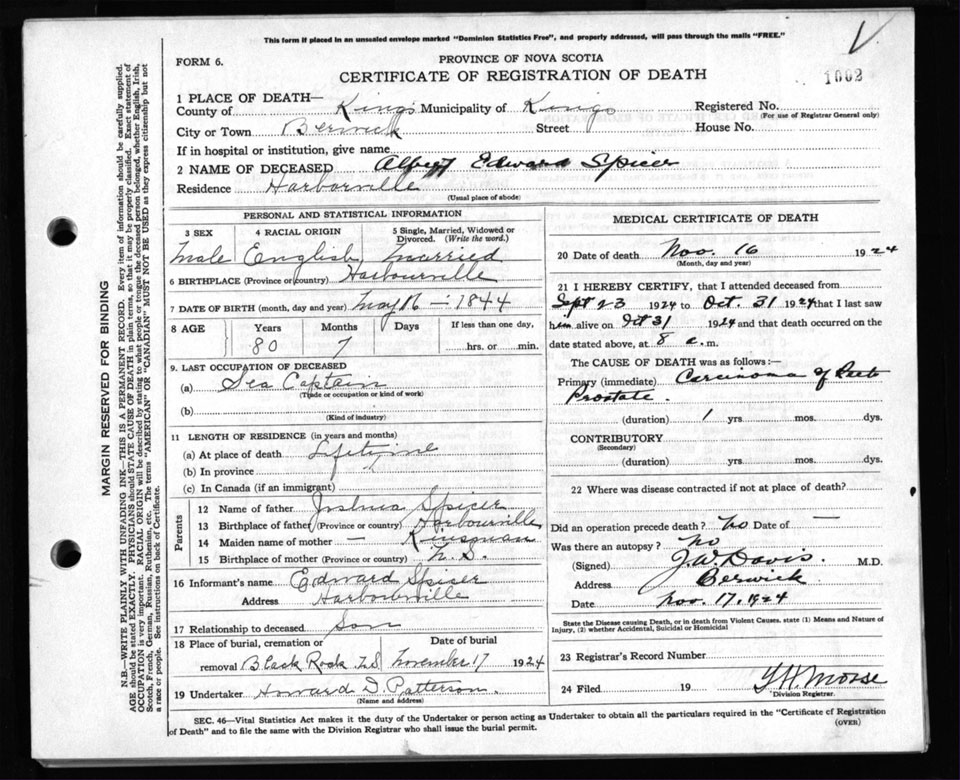 This form if placed in an unsealed envelope marked "Dominion Statistics Free", and properly addressed, will pass through the mails "FREE."
V
FORM 6.
PROVINCE OF NOVA SCOTIA
CERTIFICATE OF REGISTRATION OF DEATH
1002
1 PLACE OF DEATH—
County of Kings Municipality of Kings Registered No.
(For use of Registrar General only)
City or Town Berwick Street House No.
If in hospital or institution, give name
2 NAME OF DECEASED Albert Edward Spicer
Residence Harborville
(Usual place of abode)
PERSONAL AND STATISTICAL INFORMATION
3 SEX 4 RACIAL ORIGIN 5 Single, Married, Widowed or Divorced. (Write the word.)
Male English married
6 BIRTHPLACE (Province or country) Harbourville
7 DATE OF BIRTH (month, day and year) May 16 — 1844
8 AGE Years Months Days If less than one day,
80 7 hrs. or min.
9. LAST OCCUPATION OF DECEASED
(a) Sea Captain
(Trade or occupation or kind of work)
(b)
(Kind of industry)
11 LENGTH OF RESIDENCE (in years and months)
(a) At place of death Lifetime
(b) In province
(c) In Canada (if an immigrant)
Parents
12 Name of father Joshua Spicer
13 Birthplace of father (Province or country) Harbourville
14 Maiden name of mother — Kinsman
15 Birthplace of mother (Province or country) N.S.
16 Informant's name Edward Spicer
Address Harbourville
17 Relationship to deceased Son
18 Place of burial, cremation or removal Date of burial
Black Rock N S November 17 1924
19 Undertaker Howard D. Patterson.
(Name and address)
MEDICAL CERTIFICATE OF DEATH
20 Date of death Nov. 16 1924
(Month, day and year)
21 I HEREBY CERTIFY, that I attended deceased from
Sept 23 1924 to Oct. 31 1924 that I last saw
him alive on Oct 31 1924 and that death occurred on
date stated above, at 8 .m.
The CAUSE OF DEATH was as follows:—
Primary (immediate) Carcinoma of
Prostate.
(duration) 1 yrs. mos. dys.
CONTRIBUTORY
(Secondary)
(duration) yrs. mos. dys.
22 Where was disease contracted if not at place of death?
Did an operation precede death? No Date of —
Was there an autopsy? No
(Signed) J.W. Davis. M.D.
Address Berwick
Date Nov. 17, 1924
State the Disease causing Death, or in death from Violent Causes, state (1) Means and Nature of
Injury, (2) whether Accidental, Suicidal or Homicidal
23 Registrar's Record Number
24 Filed 19 Morse
Division Registrar.
SEC. 46—Vital Statistics Act makes it the duty of the Undertaker or person acting as Undertaker to obtain all the particulars required in the "Certificate of Registration
of Death" and to file the same with the Division Registrar who shall issue the burial permit.
(OVER)
MARGIN RESERVED FOR BINDING
N.B.—WRITE PLAINLY WITH UNFADING INK—THIS IS A PERMANENT RECORD. Every item of information should be carefully supplied.
AGE should be stated EXACTLY. PHYSICIANS should STATE CAUSE OF DEATH in plain terms, so that it may be properly classified. Exact statement of
OCCUPATION is very important. RACIAL ORIGIN will be described by stating to what people or tongue the deceased person belonged, whether English, Irish,
Scotch, French, German, Russian, Ruthenian, etc. The terms "AMERICAN" OR "CANADIAN" MUST NOT BE USED as they express citizenship but not
a race or people. See instructions on back of Certificate.